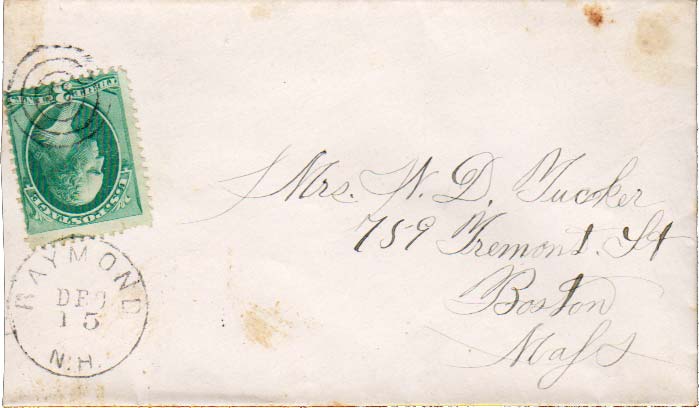 Mrs. W. D. Tucker
759 Tremont. St
Boston
Mass
RAYMOND
DEC
15
N.H.
U.S. POSTAGE